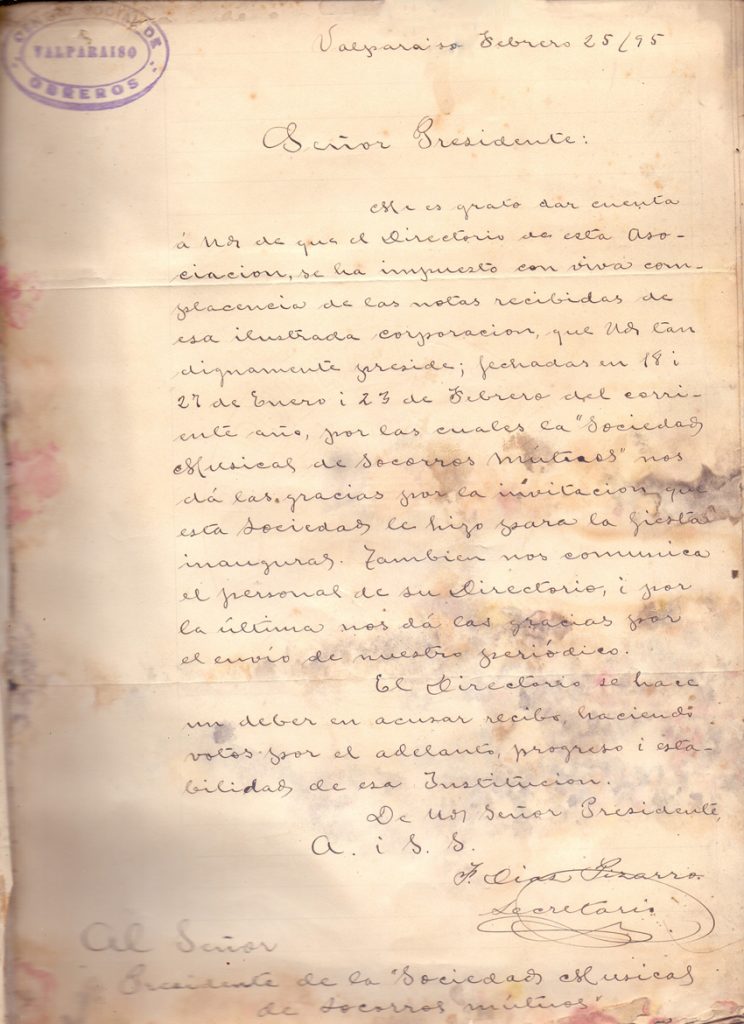 CENTRO SOCIAL DE
VALPARAISO
OBREROS
Valparaiso Febrero 25/95
Señor Presidente:
Me es grato dar cuenta
á Ud de que el Directorio de esta Aso-
ciacion, se ha impuesto con viva com-
placencia de las notas recibidas de
esa ilustrada corporacion, que Ud tan
dignamente preside; fechadas en 18 i
27 de Enero i 23 de Febrero del corri-
ente año, por las cuales la "Sociedad
Musical de Socorros Mútuos" nos
dá las gracias por la invitacion que
esta Sociedad le hizo para la fiesta
inaugural. Tambien nos comunica
el personal de su Directorio, i por
la última nos dá las gracias por
el envío de nuestro periódico.
El Directorio se hace
un deber en acusar recibo, haciendo
votos por el adelanto, progreso i esta-
bilidad de esa Institucion.
De Ud Señor Presidente,
A. i S. S.
F. Dias Pizarro
Secretario
Al Señor
Presidente de la "Sociedad Musical
de Socorros mútuos"